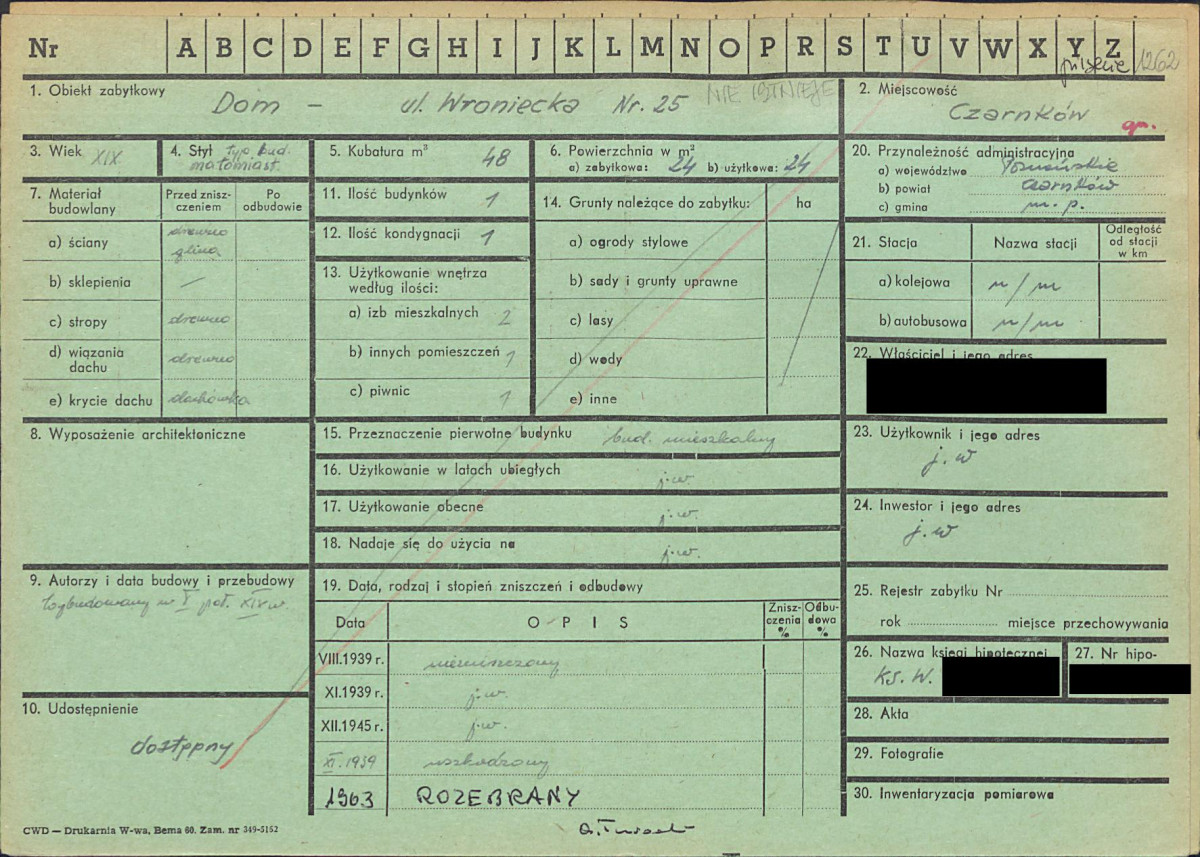 Nr A B C D E F G H I J K L M N O P R S T U V W X Y Z
pilskie 1262
1. Obiekt zabytkowy Dom – ul. Wroniecka Nr. 25 NIE ISTNIEJE
2. Miejscowość
Czarnków
gm.
3. Wiek XIX
4. Styl typ. bud.
małomiast.
5. Kubatura m³ 48
6. Powierzchnia w m²
a) zabytkowa: 24 b) użytkowa: 24
20. Przynależność administracyjna
a) województwo Poznańskie
b) powiat Czarnków
c) gmina m. p.
7. Materiał budowlany
Przed znisz-
czeniem
Po
odbudowie
a) ściany drewno
glina
b) sklepienia —
c) stropy drewno
d) wiązania
dachu drewno
e) krycie dachu dachówka
11. Ilość budynków 1
12. Ilość kondygnacji 1
13. Użytkowanie wnętrza
według ilości:
a) izb mieszkalnych 2
b) innych pomieszczeń 1
c) piwnic 1
14. Grunty należące do zabytku: ha
a) ogrody stylowe
b) sady i grunty uprawne
c) lasy
d) wody
e) inne
21. Stacja
Nazwa stacji
Odległość
od stacji
w km
a) kolejowa n/m
b) autobusowa n/m
22. Właściciel i jego adres
8. Wyposażenie architektoniczne
15. Przeznaczenie pierwotne budynku bud. mieszkalny
16. Użytkowanie w latach ubiegłych j.w.
17. Użytkowanie obecne j.w.
18. Nadaje się do użycia na j.w.
23. Użytkownik i jego adres
j.w
24. Inwestor i jego adres
j.w
9. Autorzy i data budowy i przebudowy
Wybudowany w I poł. XIX w.
19. Data, rodzaj i stopień zniszczeń i odbudowy
Data
OPIS
Znisz-
czenia
%
Odbu-
dowa
%
VIII.1939 r. niezniszczony
XI.1939 r. j.w.
XII.1945 r. j.w.
XI.1959 uszkodzony
1963 ROZEBRANY
25. Rejestr zabytku Nr
rok miejsce przechowywania
26. Nazwa księgi hipotecznej
Ks. W.
27. Nr hipo-
10. Udostępnienie
dostępny
28. Akta
29. Fotografie
30. Inwentaryzacja pomiarowa
CWD — Drukarnia W-wa, Bema 60. Zam. nr 349-5152